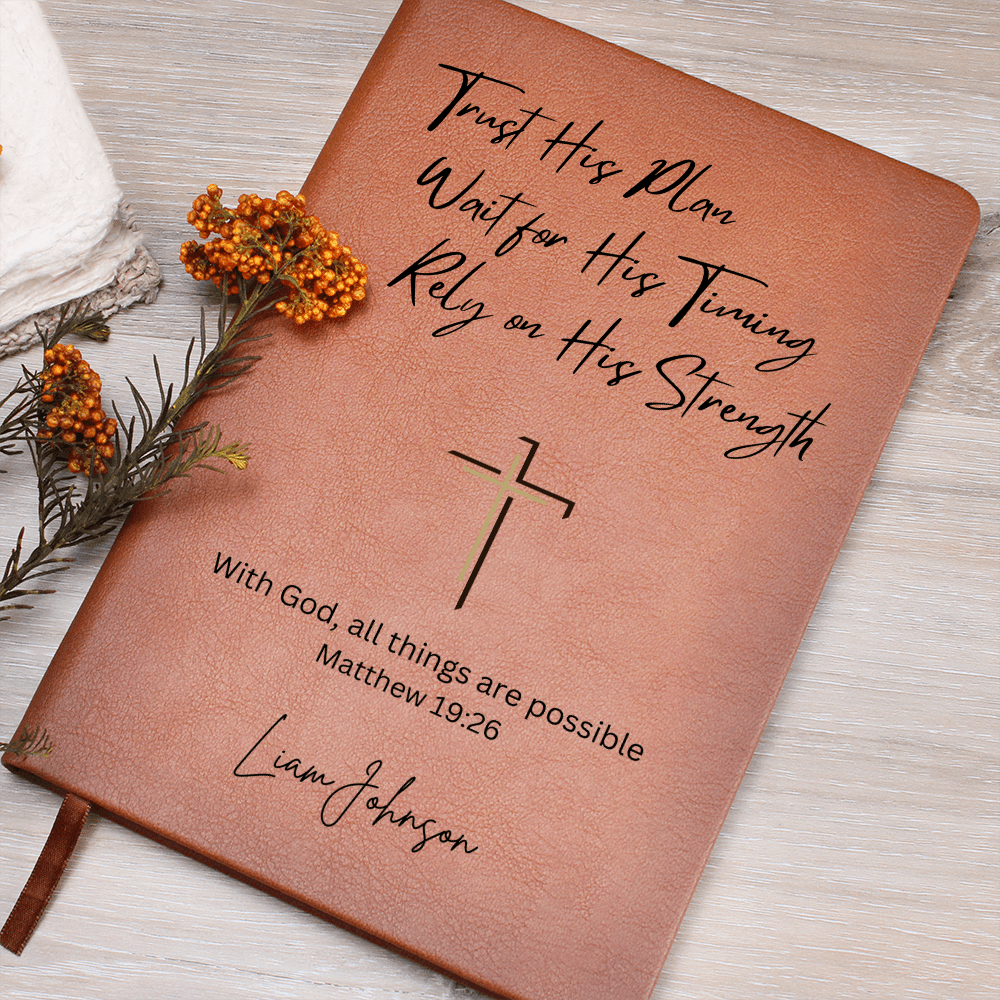 Trust His Plan
Wait for His Timing
Rely on His Strength
With God, all things are possible
Matthew 19:26
Liam Johnson